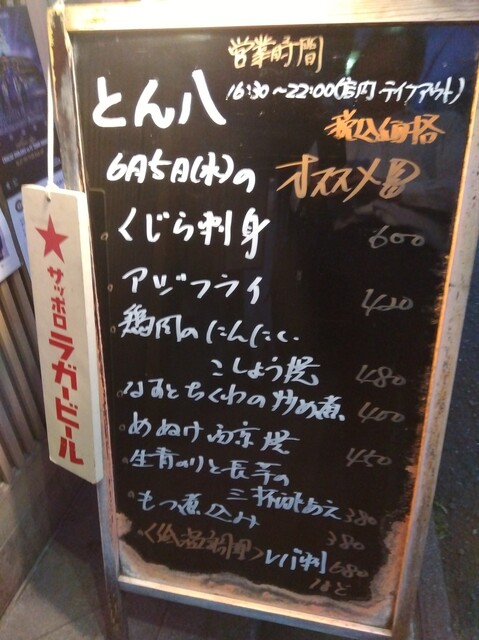 営業時間
16:30～22:00(店内 テイクアウト)
とん八
税込価格
6月5日(水)の オススメ品
くじら刺身 600
アジフライ 420
鶏肉のにんにく
こしょう焼 480
なすとちくわの炒め煮 400
めぬけ西京焼 450
生青のりと長芋の
三杯酢あえ 380
もつ煮込み 380
レバ刺 680
★サッポロラガービール